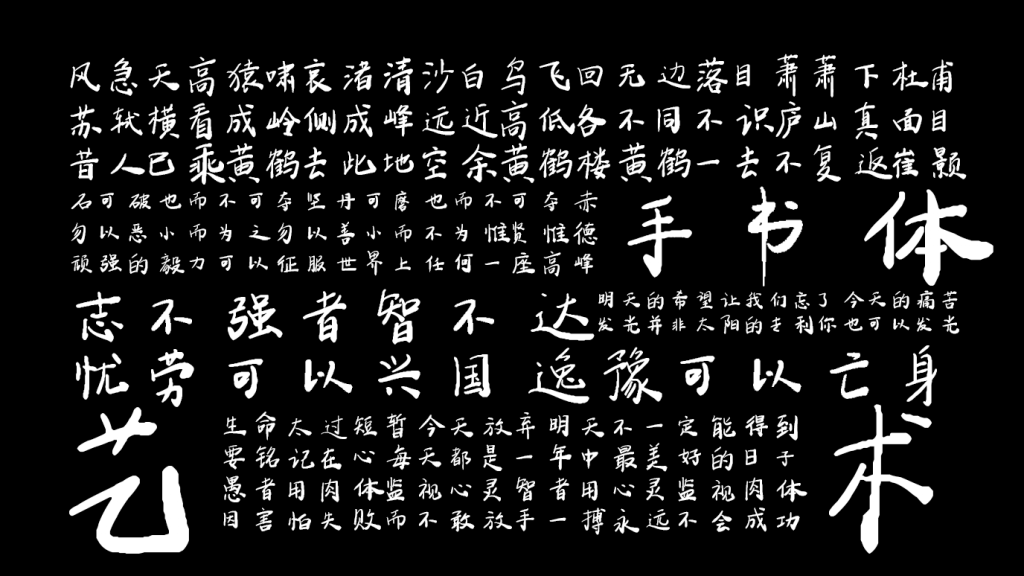 风急天高猿啸哀渚清沙白鸟飞回无边落目萧萧下杜甫
苏轼横看成岭侧成峰远近高低各不同不识庐山真面目
昔人已乘黄鹤去此地空余黄鹤楼黄鹤一去不复返崔颢
石可破也而不可夺坚丹可磨也而不可夺赤
勿以恶小而为之勿以善小而不为惟贤惟德
顽强的毅力可以征服世界上任何一座高峰
手书体
志不强者智不达
明天的希望让我们忘了今天的痛苦
发光并非太阳的专利你也可以发光
忧劳可以兴国逸豫可以亡身
艺
生命太过短暂今天放弃明天不一定能得到
要铭记在心每天都是一年中最美好的日子
愚者用肉体监视心灵智者用心灵监视肉体
因害怕失败而不敢放手一搏永远不会成功
术